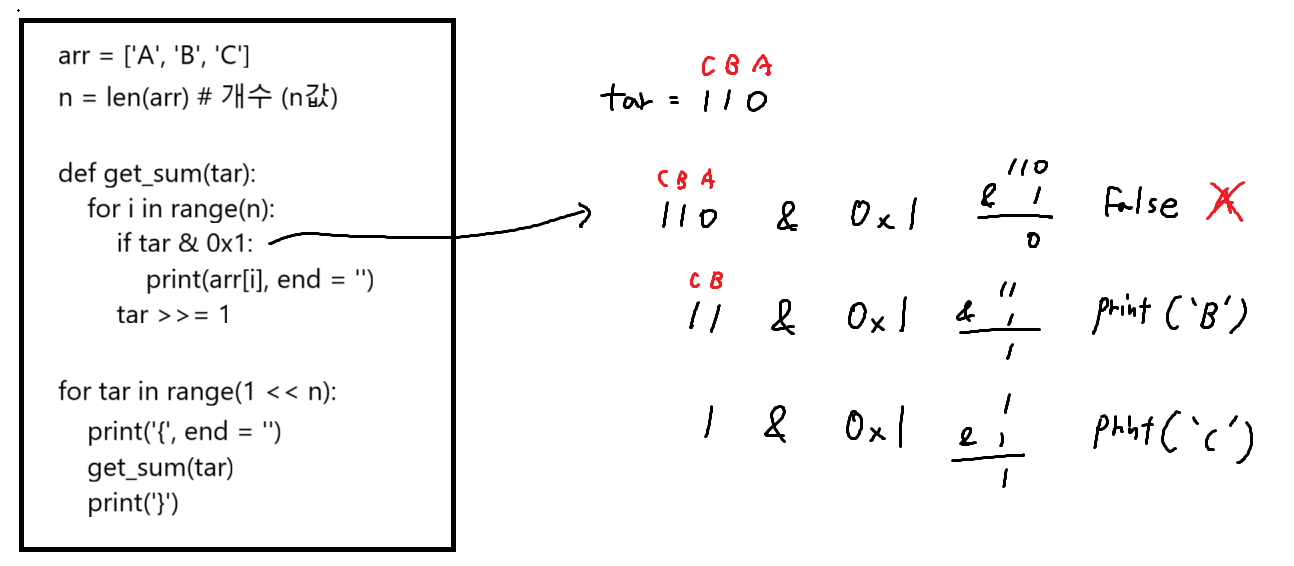 arr = ['A', 'B', 'C']
n = len(arr) # 개수 (n값)
def get_sum(tar):
for i in range(n):
if tar & 0x1:
print(arr[i], end = '')
tar >>= 1
for tar in range(1 << n):
print('{', end = '')
get_sum(tar)
print('}')
C B A
tar = 110
C B A
110 & 0x1
110
& 1
0
False A
C B
11 & 0x1
11
& 1
1
print('B')
1 & 0x1
1
& 1
1
print('C')